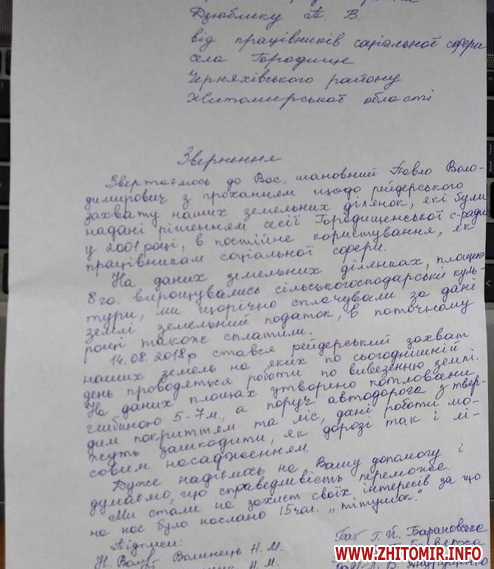 Дзюблику П. В.
від працівників соціальної сфери
села Городище
Черняхівського району
Житомирської області
Звернення
Звертаємось до Вас, шановний Павло Воло-
димирович з проханням щодо рейдерського
захвату наших земельних ділянок, які були
надані рішенням сесії Городищенської с-ради
у 2001 році, в постійне користування, як
працівникам соціальної сфери.
На даних земельних ділянках, площею
8 га. вирощувались сільськогосподарські куль-
тури, ми щорічно сплачували за дані
землі земельний податок, в поточному
році також сплатили.
14.08.2018р. стався рейдерський захват
наших земель на яких по сьогоднішній
день проводяться роботи по вивезенню землі.
На даних площах утворено котловани
глибиною 5-7м, а поруч автодорога з твер-
дим покриттям та ліс, дані роботи мо-
жуть зашкодити, як дорозі так і лі-
совим насадженням.
Дуже надіємось на Вашу допомогу і
думаємо, що справедливість переможе.
Ми стали на захист своїх інтересів за що
на нас було наслано 15 чол. "тітушок".
Підписи:
Н. Волинець Н. М.
Г. Й. Барановська
WWW.ZHITOMIR.INFO